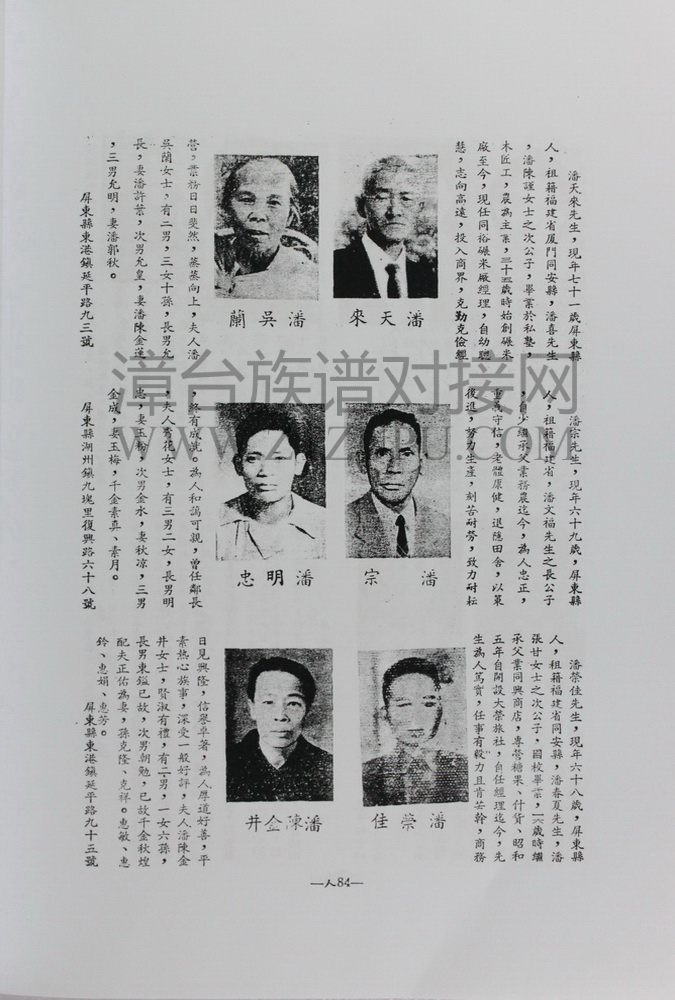 潘天來先生，現年七十一歲屏東縣
人，祖籍福建省廈門同安縣，潘喜先生
，潘陳謹女士之次公子，畢業於私塾，
木匠工，農為主業，三十五歲時始創碾米
廠至今，現任同裕碾米廠經理，自幼聰
慧，志向高遠，投入商界，克勤克儉經
潘天來
潘吳蘭
營，業務日日斐然，蒸蒸向上，夫人潘
吳蘭女士，有二男，三女十孫，長男允
長，妻潘許葉，次男允皇，妻潘陳金蓮
，三男允明，妻潘郭秋。
屏東縣東港鎮延平路九三號
潘宗先生，現年六十九歲，屏東縣
人，祖籍福建省，潘文福先生之長公子
，自少繼承父業務農迄今，為人忠正，
重義守信，老體康健，退隱田舍，以策
後進，努力生產，刻苦耐勞，致力耐耘
潘宗
潘明忠
，終有成就。為人和謁可親，曾任鄰長
，夫人秀花女士，有三男二女，長男明
忠，妻玉梅，次男金水，妻秋凉，三男
金成，妻玉梅，千金素真、素月。
屏東縣湖州鎮九塊里復興路六十八號
潘榮佳先生，現年六十八歲，屏東縣
人，祖籍福建省同安縣，潘春夏先生，潘
張甘女士之次公子，國校畢業，二六歲時繼
承父業同興商店，專營糖果、什貨、昭和
五年自開設大榮旅社，自任經理迄今，先
生為人篤實，任事有毅力且肯苦幹，商務
潘榮佳
潘陳金井
日見興隆，信譽卓著，為人厚道好善，平
素熱心族事，深受一般好評，夫人潘陳金
井女士，賢淑有禮，有二男，一女六孫，
長男東鎰已故，次男朝勉，已故千金秋煌
配夫正佑為妻，孫克隆、克祥。惠敏、惠
鈴、惠娟、惠芳。
屏東縣東港鎮延平路九十五號
—人84—
漳台族谱对接网
WWW.ZTZUPU.COM